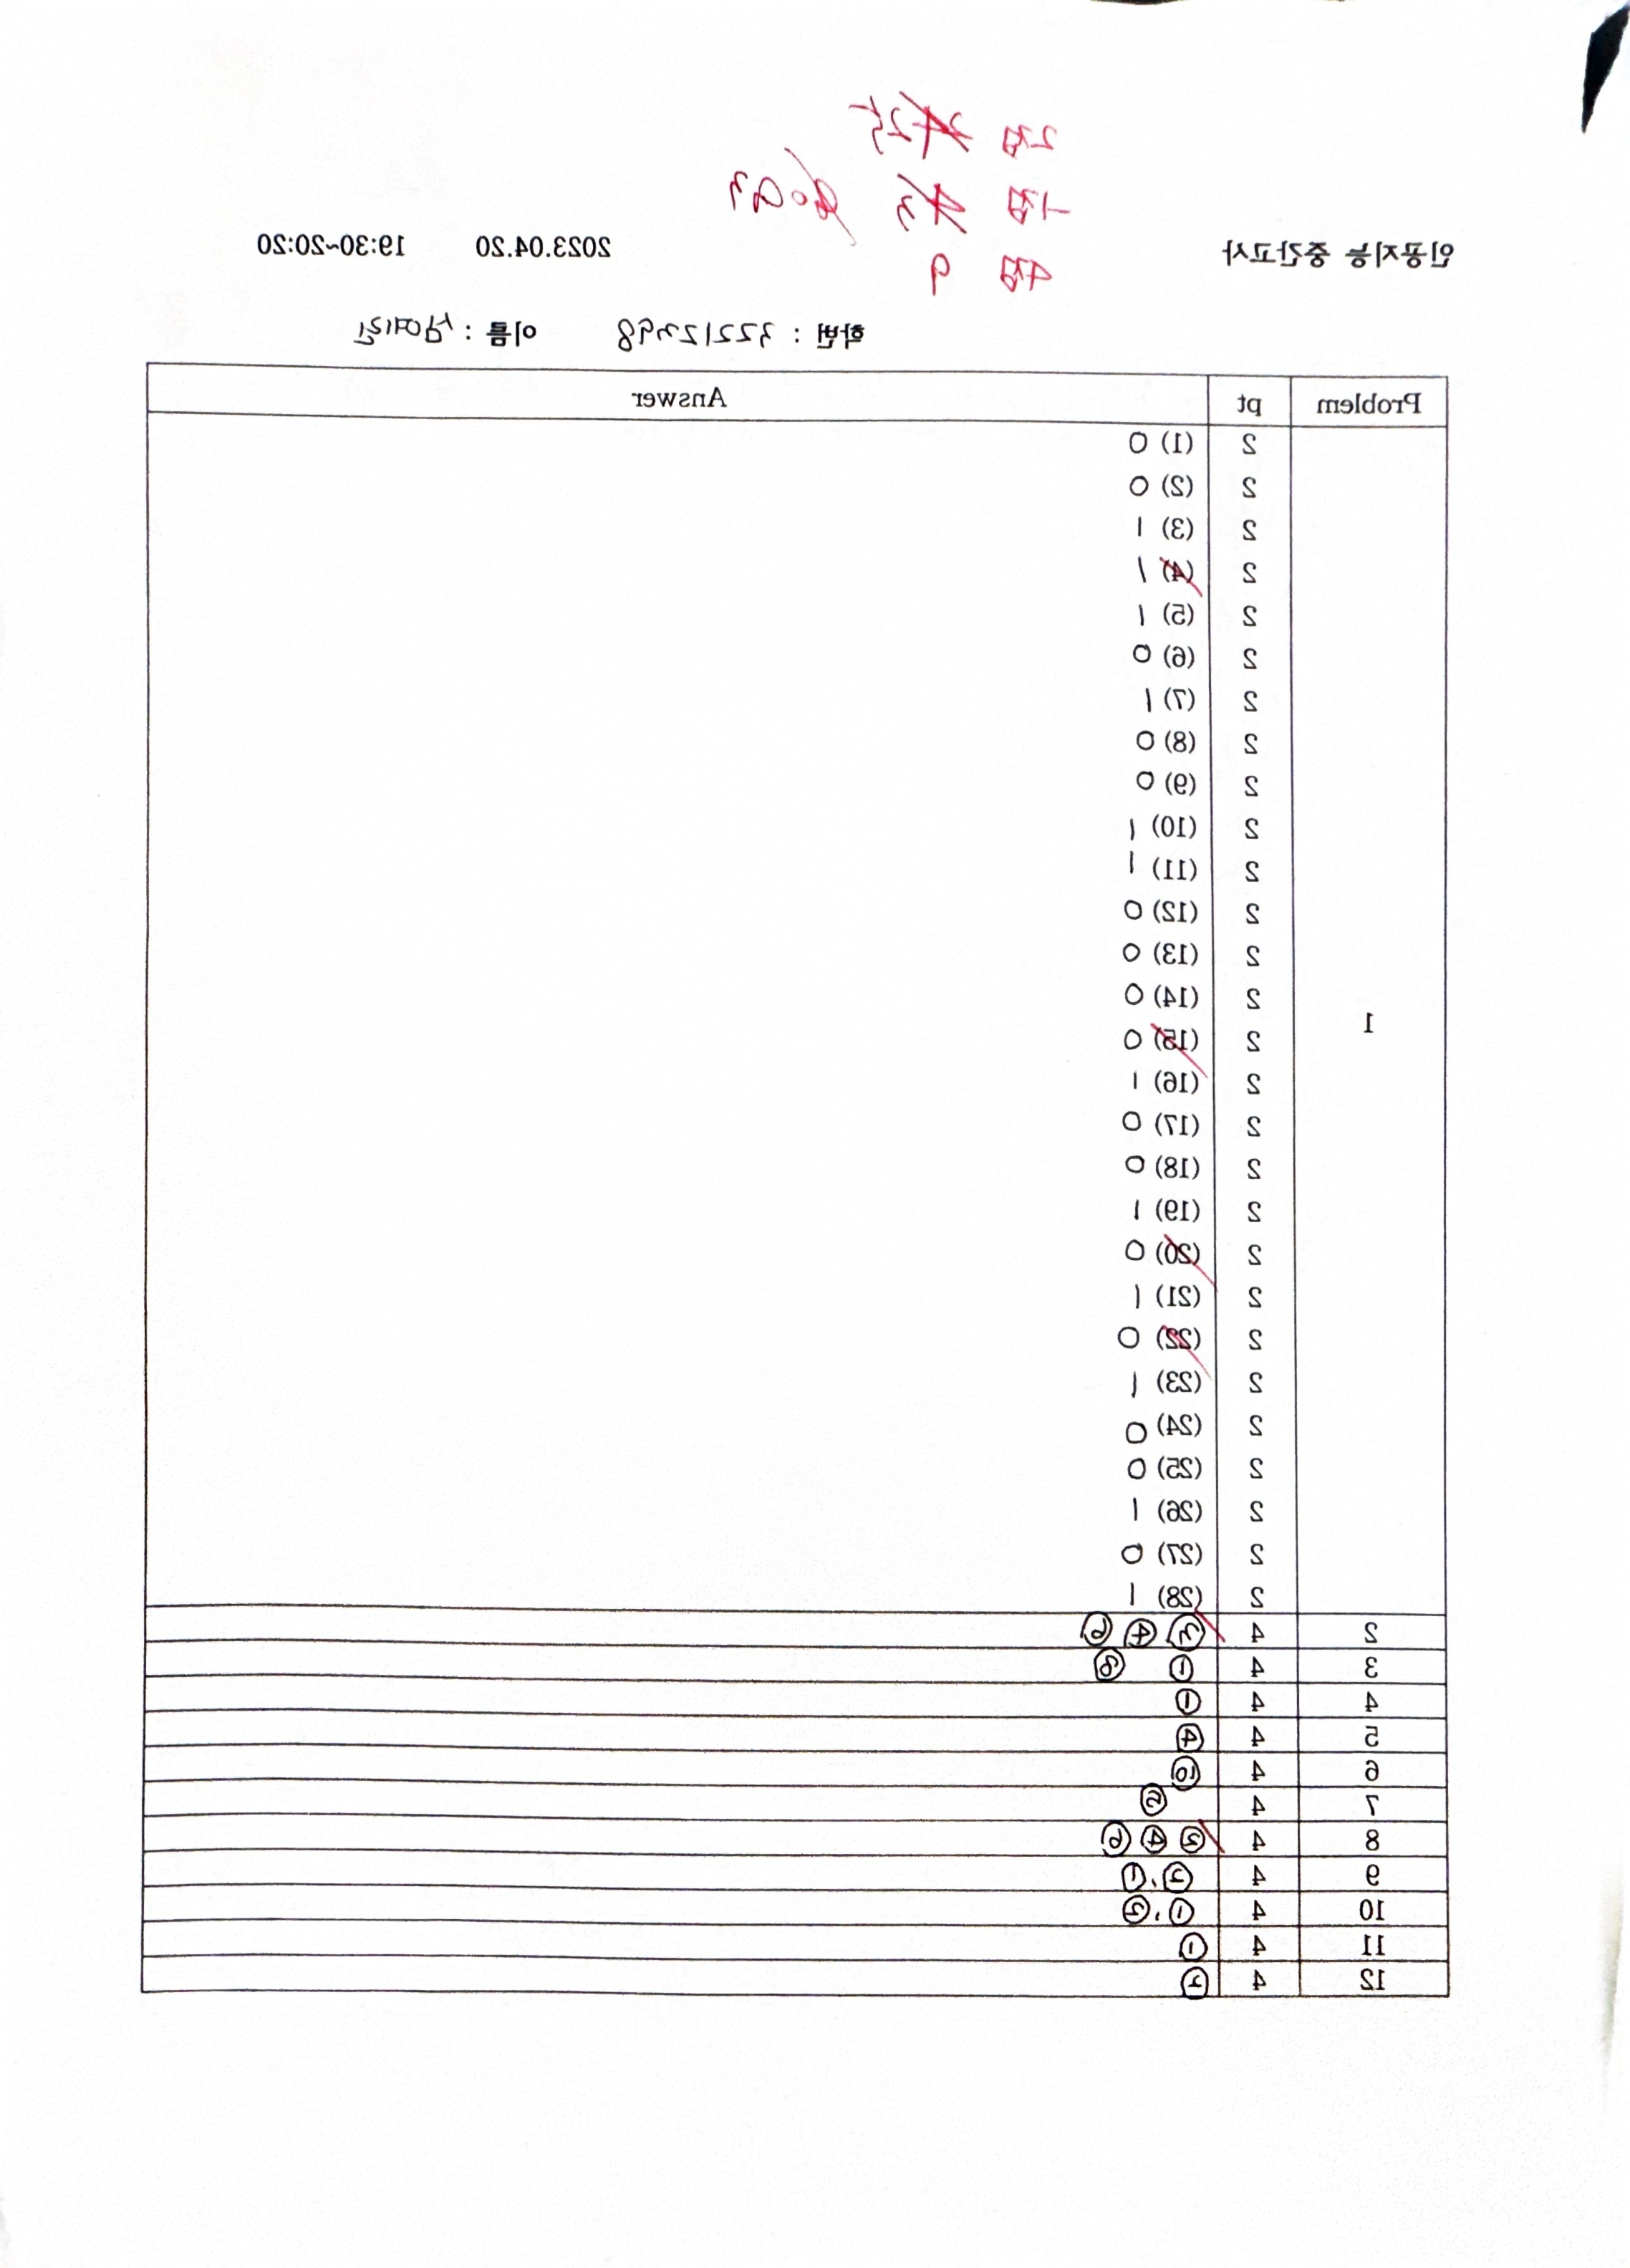 2점 25
1점 3 93
4점 9
인공지능 중간고사 2023.04.20 19:30~20:20
학번 : 32212398 이름 :
Problem pt Answer
1
2 (1) 0
2 (2) 0
2 (3) 1
2 (4) 1
2 (5) 1
2 (6) 0
2 (7) 1
2 (8) 0
2 (9) 0
2 (10) 1
2 (11) 1
2 (12) 0
2 (13) 0
2 (14) 0
2 (15) 0
2 (16) 1
2 (17) 0
2 (18) 0
2 (19) 1
2 (20) 0
2 (21) 1
2 (22) 0
2 (23) 1
2 (24) 0
2 (25) 0
2 (26) 1
2 (27) 0
2 (28) 1
2 4 ③ ④ ⑥
3 4 ① ⑧
4 4 ①
5 4 ④
6 4 ⑩
7 4 ②
8 4 ③ ④ ⑥
9 4 ⑤, ①
10 4 ①, ⑤
11 4 ①
12 4